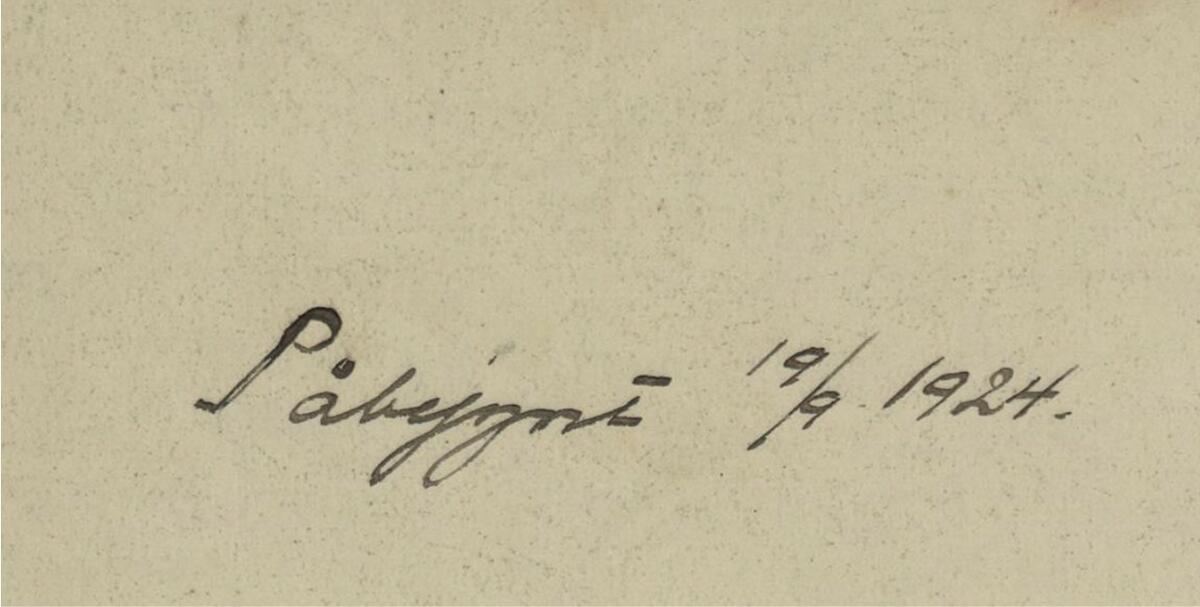 Påbejynt 19/9 1924.